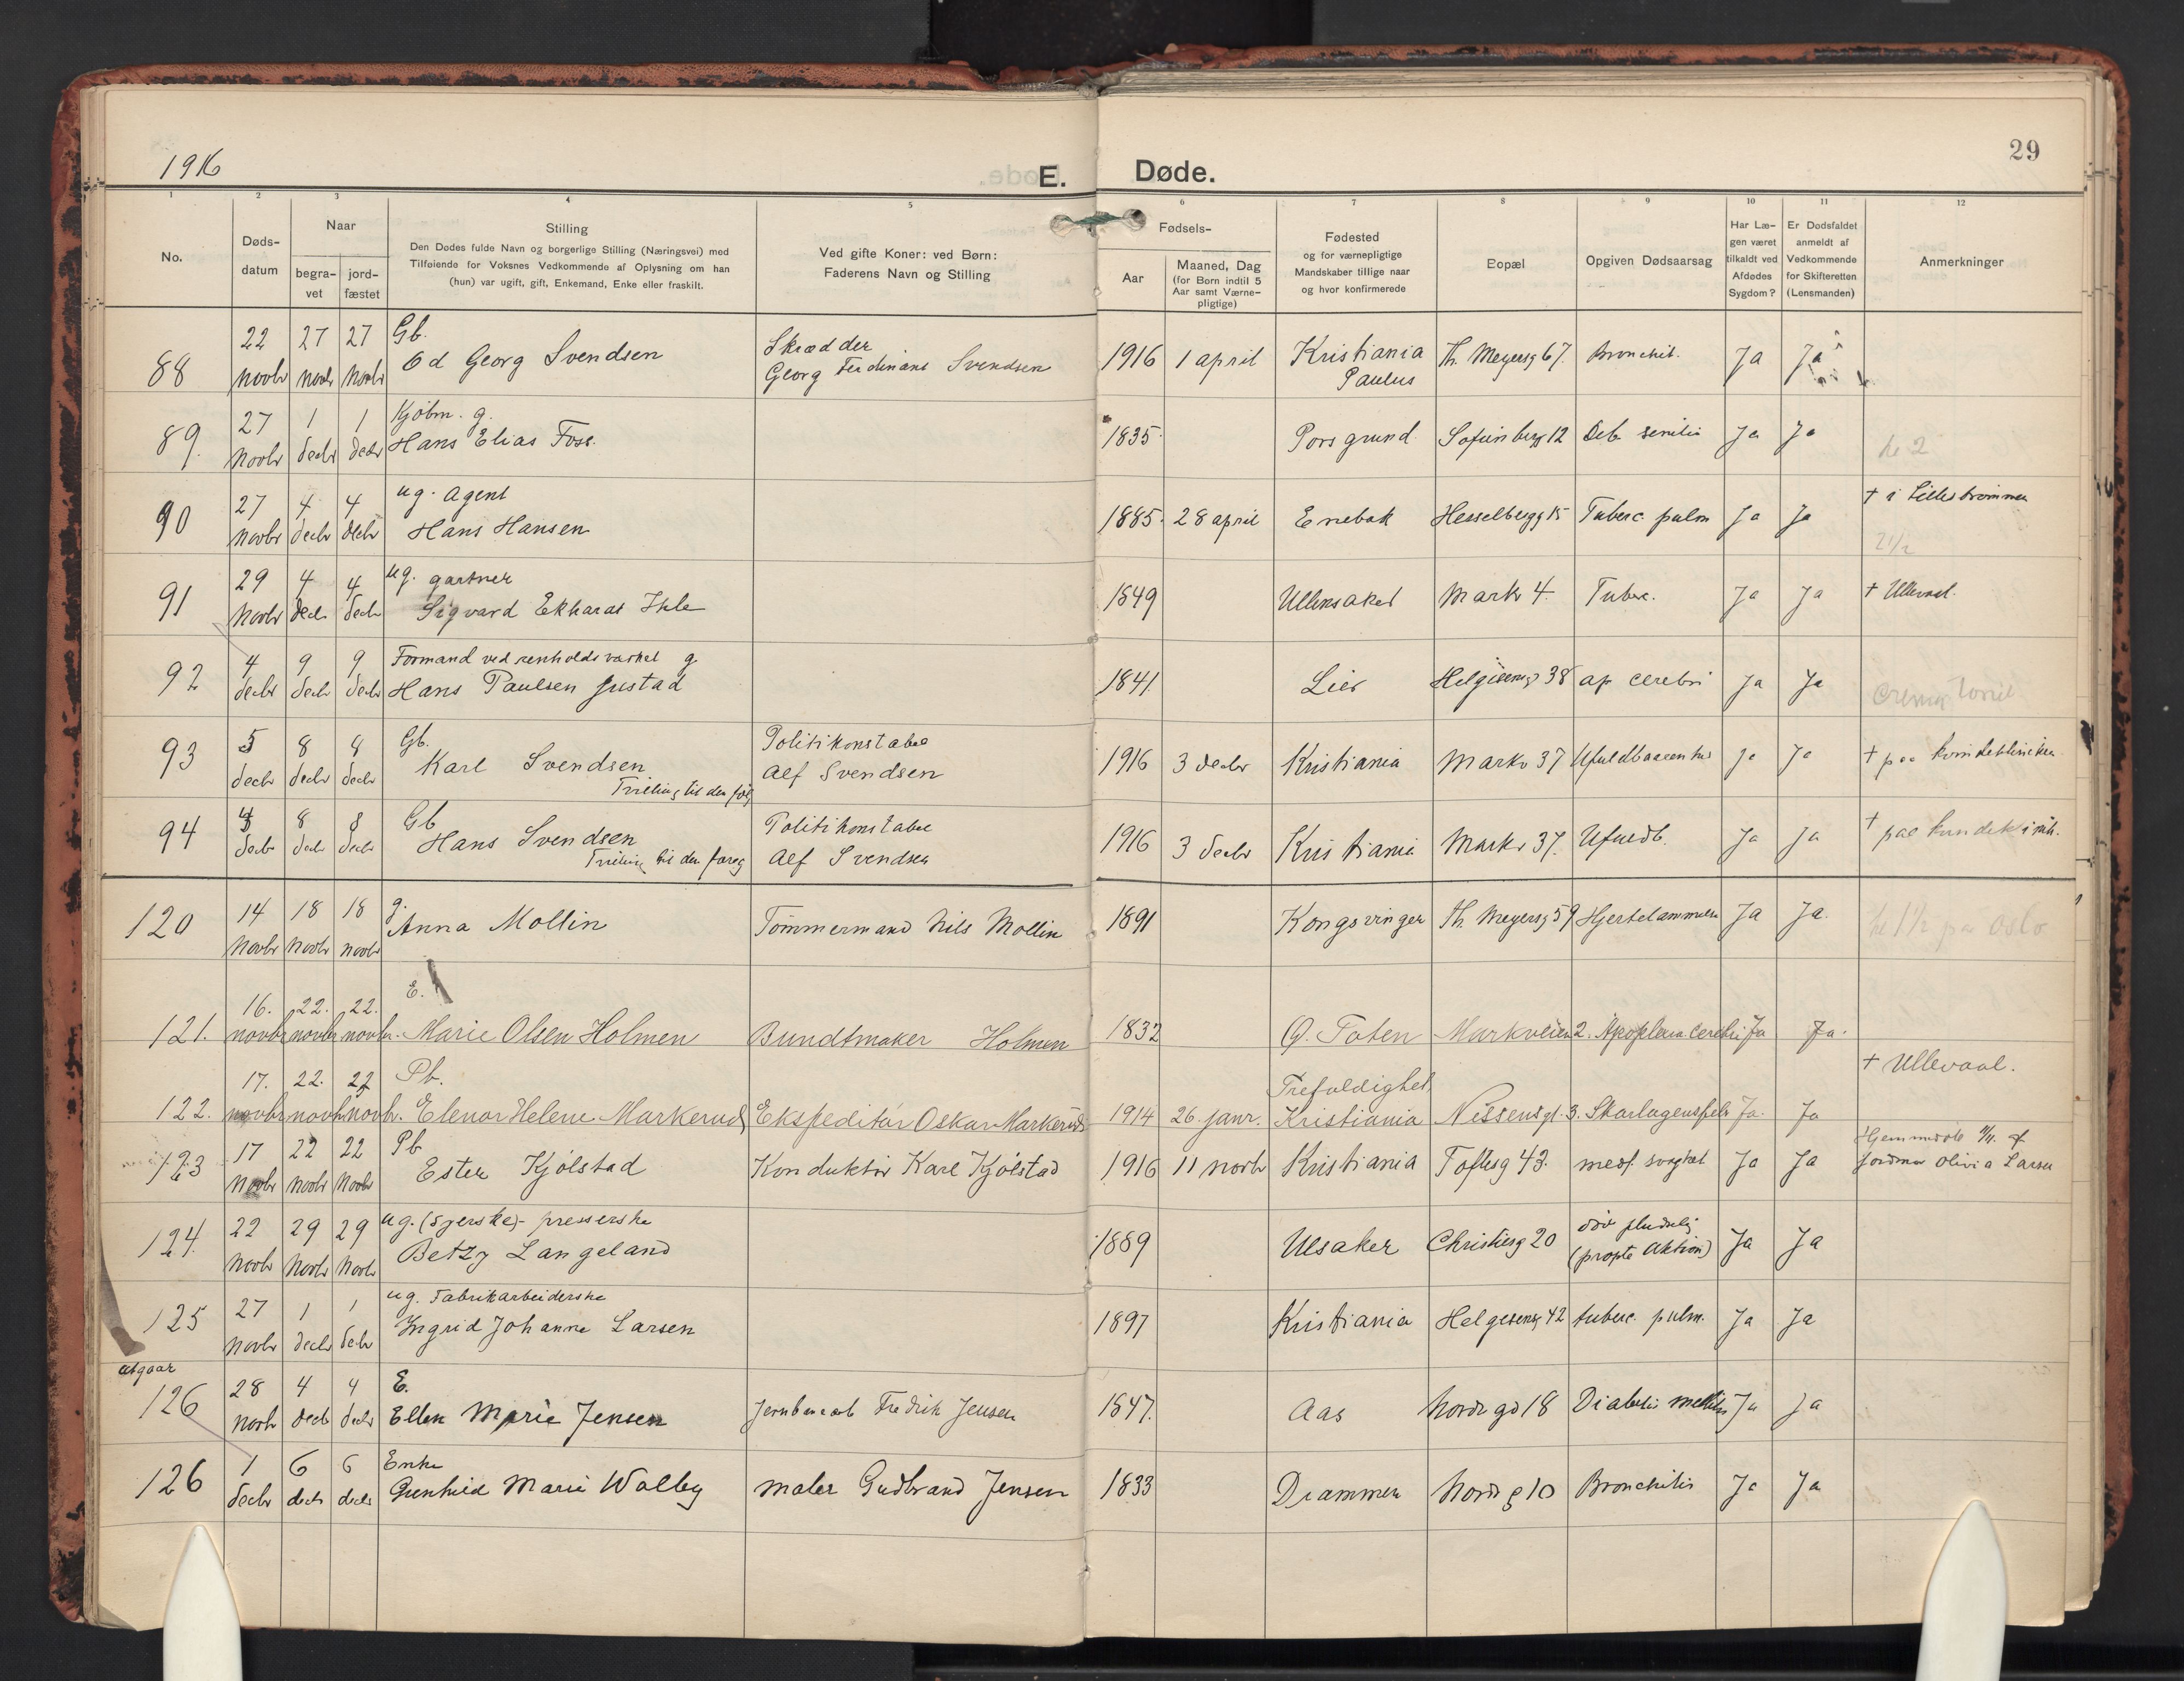 1916
E. Døde.
29
1 2 3 4 5 6 7 8 9 10 11 12
No.
Døds-
datum
Naar
begra-
vet
jord-
fæstet
Stilling
Den Dødes fulde Navn og borgerlige Stilling (Næringsvei) med
Tilføiende for Voksnes Vedkommende af Oplysning om han
(hun) var ugift, gift, Enkemand, Enke eller fraskilt.
Ved gifte Koner: ved Børn:
Faderens Navn og Stilling
Fødsels-
Aar
Maaned, Dag
(for Børn indtil 5
Aar samt Værne-
pligtige)
Fødested
og for værnepligtige
Mandskaber tillige naar
og hvor konfirmerede
Bopæl
Opgiven Dødsaarsag
Har Læ-
gen været
tilkaldt ved
Afdødes
Sygdom?
Er Dødsfaldet
anmeldt af
Vedkommende
for Skifteretten
(Lensmanden)
Anmerkninger
22 27 27 Gb. Skrædder
88 novbr novbr novbr Od Georg Svendsen Georg Ferdinand Svendsen 1916 1 april Kristiania Th. Meyersg 67. Bronchit. Ja Ja
Paulus
27 1 1 Kjøbm. g.
89. novbr decbr decbr Hans Elias Foss. 1835. Porsgrund Sofienbergg 12 Deb. senilis Ja Ja
27 4 4 ug. agent + i Lillestrømmen
90 novbr decbr decbr Hans Hansen 1885. 28 april Enebak Hesselbergg 15 Tuberc. pulm Ja Ja
2 1/2
29 4 4 ug. gartner
91 novbr decbr decbr Sigvard Ekharat 1849 Ullensaker Markv 4. Tuberc. Ja Ja + Ullevaal.
4 9 9 Formand ved renholdsvæsket g
92 decbr decbr decbr Hans Paulsen Justad 1841. Lier Helgesensg 38 ap cerebri Ja Ja
5 8 8 Gb. Politikonstabel
93 decbr decbr decbr Karl Svendsen Alf Svendsen 1916 3 decbr Kristiania Markv 37 Ufuldbaaren Ja Ja + paa
Tvilling til den følg
4 8 8 Gb Politikonstabel
94 decbr decbr decbr Hans Svendsen Alf Svendsen 1916 3 decbr Kristiania Markv 37. Ufuldb. Ja Ja + paa
Tvilling til den foreg
14 18 18 g.
120 novbr novbr novbr Anna Mollin Tømmermand Nils Mollin 1891 Kongsvinger Th. Meyersg 59 Hjertelammelse Ja Ja. kl 1 1/2 paa Oslo
16. 22. 22. E.
121. novbr novbr novbr. Marie Olsen Holmen Bundtmaker Holmen 1832 Ø. Toten Markveien 2. Apoplexia cerebri Ja Ja.
17. 22. 22 Pb. Trefoldighet + Ullevaal.
122. novbr novbr novbr. Elenor Helene Markerud Ekspeditør Oskar Markerud 1914 26. janr. Kristiania Nissensgt. 3. Skarlagensfeber Ja. Ja
17 22 22 Pb Hjemmedøbt
123 novbr novbr novbr Ester Kjølstad Konduktør Karl Kjølstad 1916 11 novbr Kristiania Toftesg 43. medf. svaghet Ja Ja jordmor Olivia Larsen
22 29 29 ug. (Syerske)- presserske død pludselig
124. novbr novbr novbr Betzy Langeland 1889 Ulsaker Christiesg 20 Ja Ja
27 1 1 ug. Fabrikarbeiderske
125 novbr decbr decbr Ingrid Johanne Larsen 1897 Kristiania Helgesensg 42 tuberc. pulm. Ja Ja
utgaar
28 4 4 E.
126 novbr decbr decbr Ellen Marie Jensen Fredrik Jensen 1847. Aas Nordr gd 18 Diabetes mellitus Ja Ja
1 6 6 Enke
126 decbr decbr decbr Gunhild Marie Walby maler Gudbrand Jensen 1833 Drammen Nordr g 10 Bronchitis Ja Ja